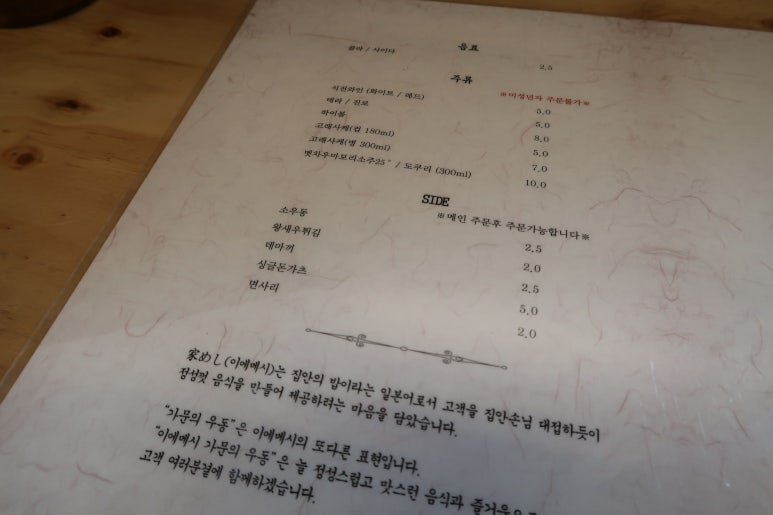 음료
콜라 / 사이다 2.5
주류
※미성년자 주문불가※
식전와인 (화이트 / 레드) 5.0
테라 / 진로 5.0
하이볼 8.0
고래사케(컵 180ml) 5.0
고래사케(병 300ml) 7.0
벳차우마보리소주25° / 도쿠리 (300ml) 10.0
SIDE
※메인 주문후 주문가능합니다※
소우동 2.5
왕새우튀김 2.0
데마끼 2.5
싱글돈가츠 5.0
면사리 2.0
家めし(이에메시)는 집안의 밥이라는 일본어로서 고객을 집안손님 대접하듯이
정성껏 음식을 만들어 제공하려는 마음을 담았습니다.
"가문의 우동"은 이에메시의 또다른 표현입니다.
"이에메시 가문의 우동"은 늘 정성스럽고 맛스런 음식과
고객 여러분곁에 함께하겠습니다.